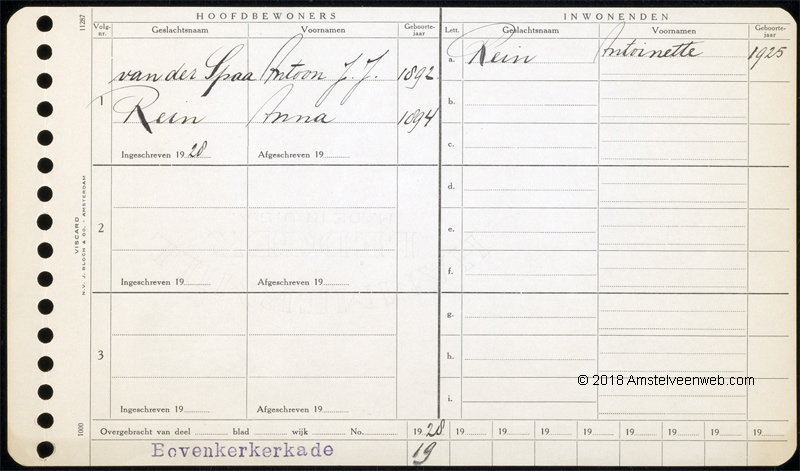 HOOFDBEWONERS
Volg-nr. Geslachtsnaam Voornamen Geboorte-jaar
1 van der Spaa Antoon J. J. 1892
Rein Anna 1894
Ingeschreven 1928 Afgeschreven 19
2
Ingeschreven 19 Afgeschreven 19
3
Ingeschreven 19 Afgeschreven 19
INWONENDEN
Lett. Geslachtsnaam Voornamen Geboorte-jaar
a. Rein Antoinette 1925
b.
c.
d.
e.
f.
g.
h.
i.
© 2018 Amstelveenweb.com
Overgebracht van deel blad wijk No. 1928 19 19 19 19 19 19 19 19
Bovenkerkerkade 19
11287
VISCARD
N.V. J. BLOCH & CO. - AMSTERDAM
1000